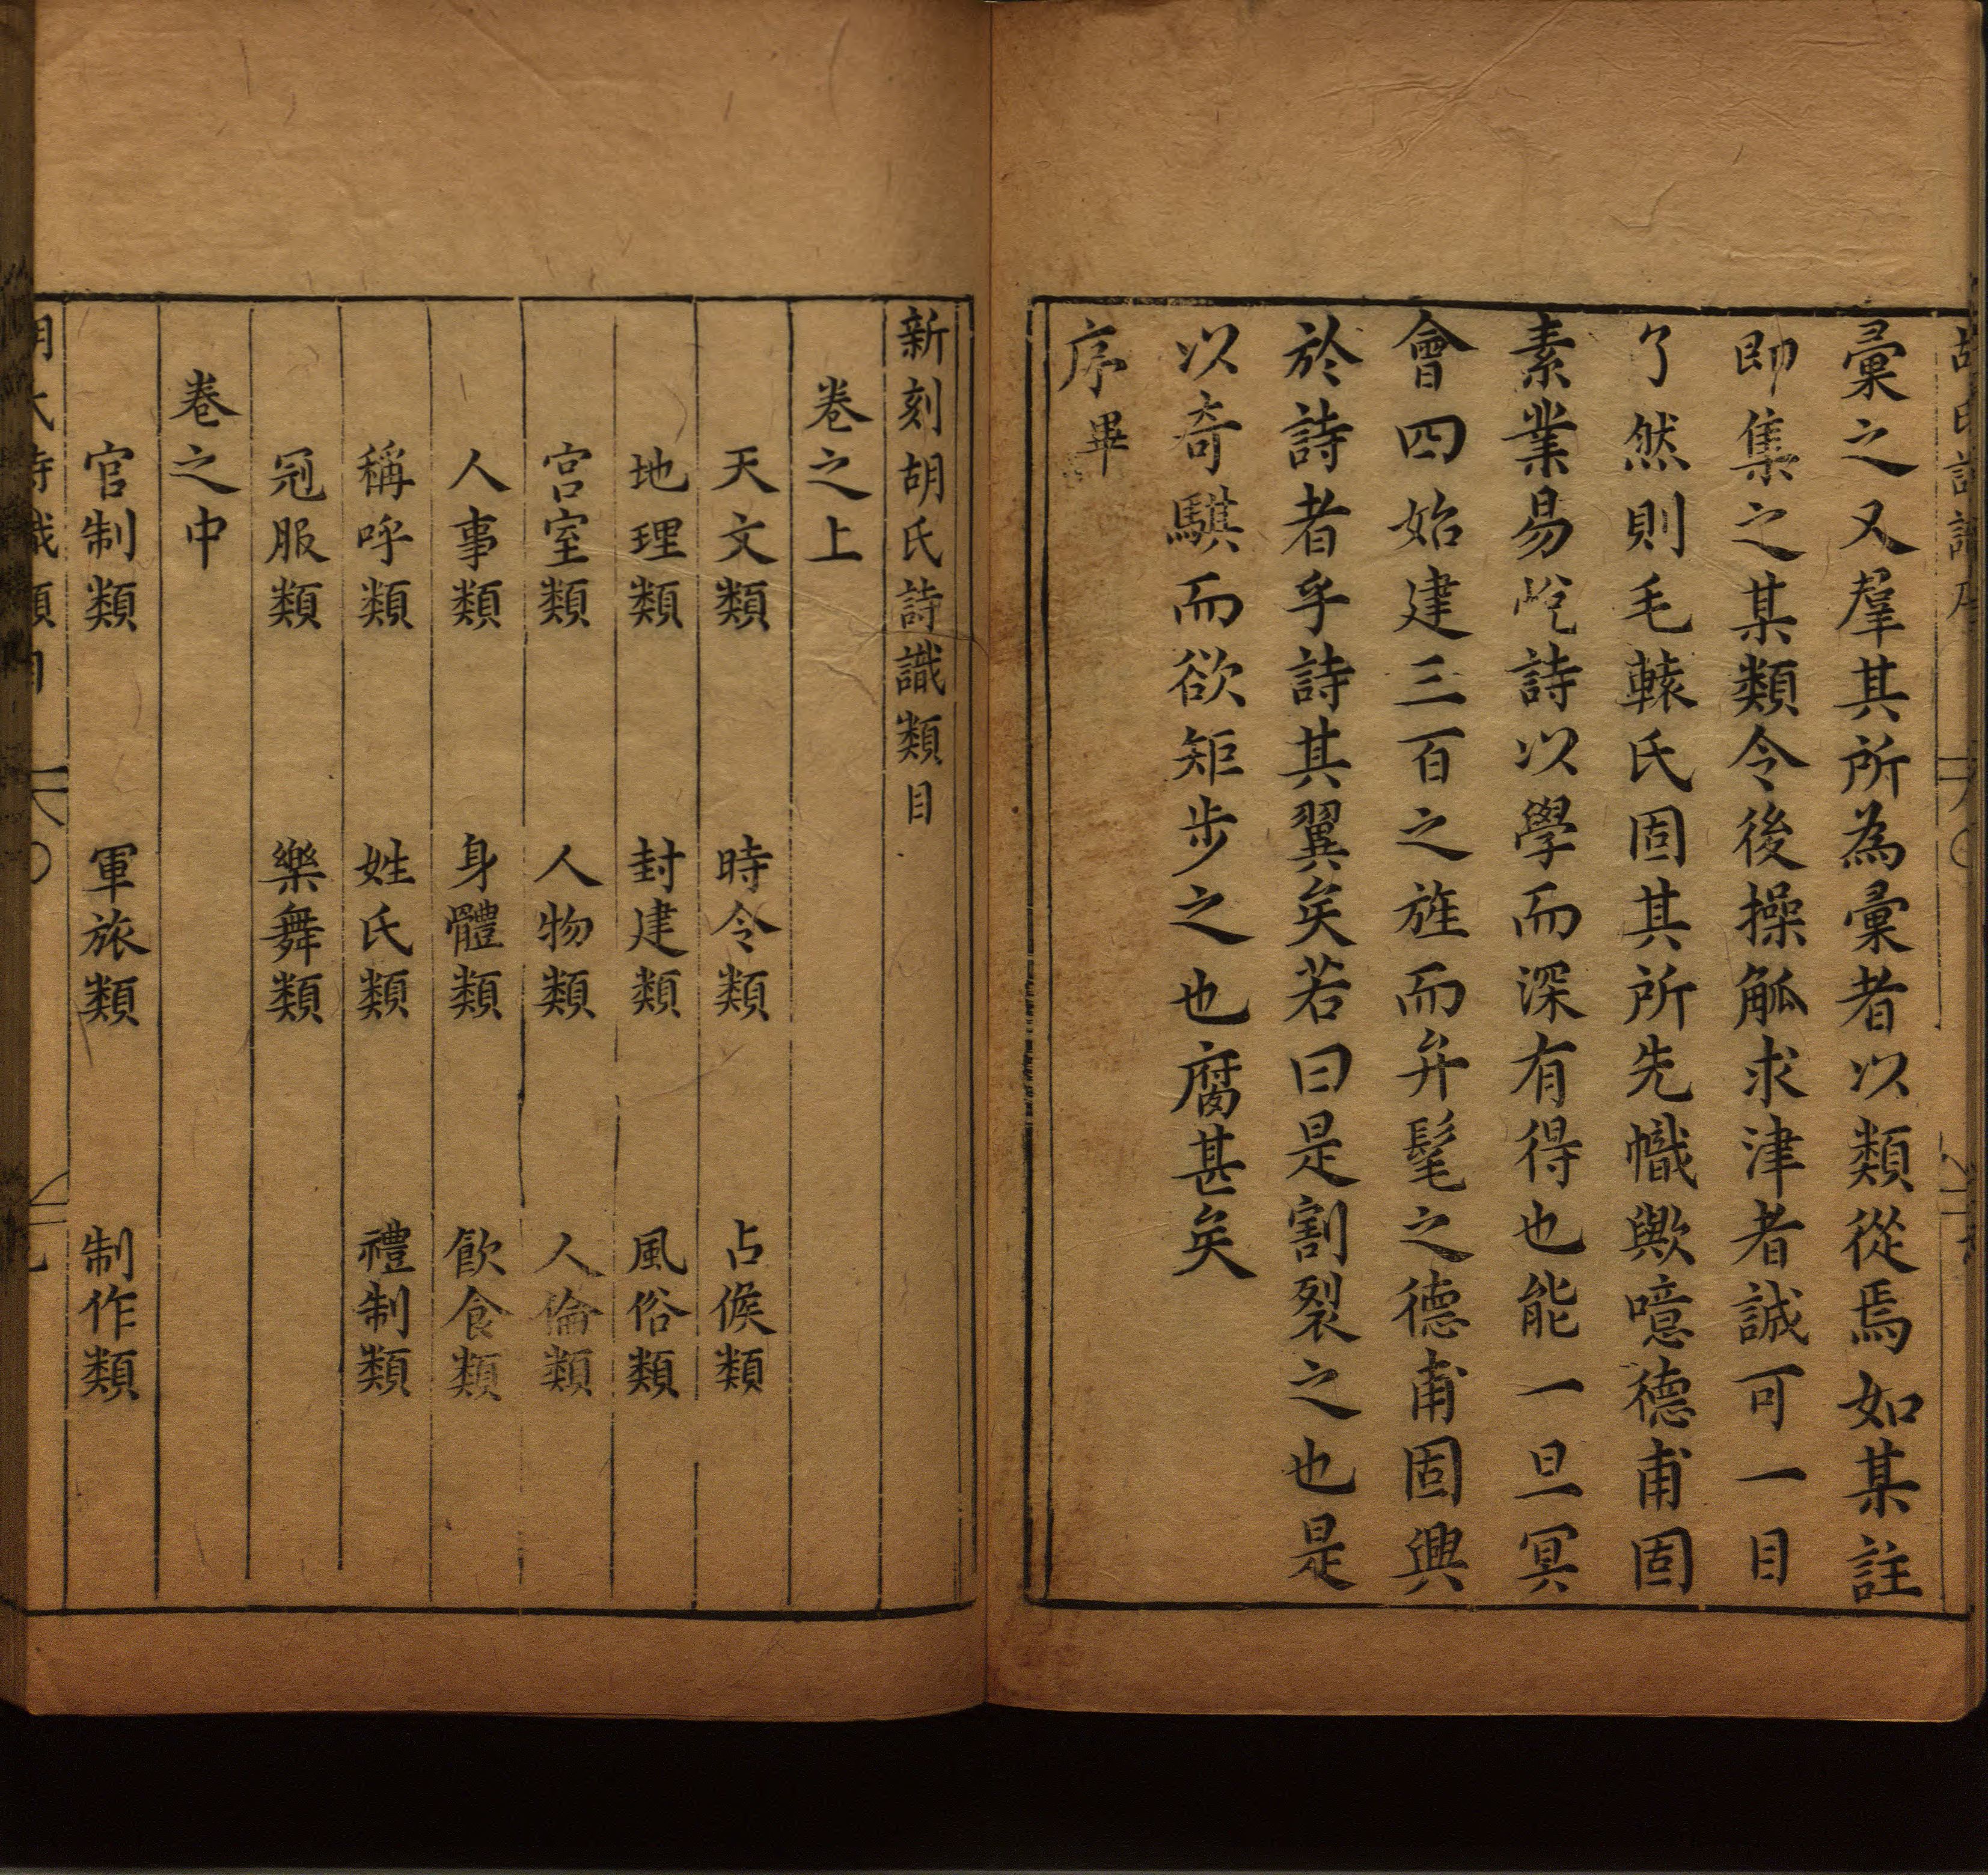 彙之又羣其所為彙者以類從焉如某註
即集之某類令後操觚求津者誠可一目
了然則毛轅氏固其所先幟歟噫德甫固
素業易屹詩以學而深有得也能一旦冥
會四始建三百之旌而弁髦之德甫固興
於詩者乎詩其翼矣若曰是割裂之也是
以奇騏而欲矩步之也腐甚矣
序畢
新刻胡氏詩識類目
卷之上
天文類 時令類 占候類
地理類 封建類 風俗類
宮室類 人物類 人倫類
人事類 身體類 飲食類
稱呼類 姓氏類 禮制類
冠服類 樂舞類
卷之中
官制類 軍旅類 制作類